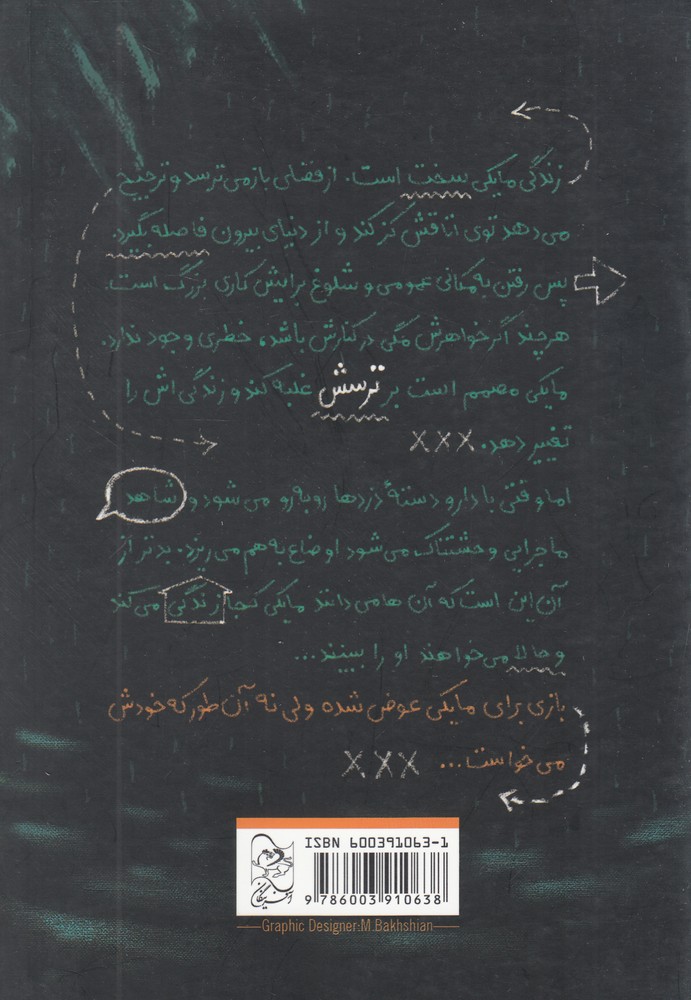 زندگی مایکی سخت است. از فضای باز می ترسد و ترجیح
می دهد توی اتاقش کز کند و از دنیای بیرون فاصله بگیرد.
پس رفتن به مکانی عمومی و شلوغ برایش کاری بزرگ است.
هرچند اگر خواهرش مگی در کنارش باشد، خطری وجود ندارد.
مایکی مصمم است بر ترسش غلبه کند و زندگی اش را
تغییر دهد. XXX
اما وقتی با دار و دستهٔ دزدها روبه رو می شود و شاهد
ماجرایی وحشتناک می شود اوضاع به هم می ریزد. بدتر از
آن این است که آن ها می دانند مایکی کجا زندگی می کند
و حالا می خواهند او را ببینند...
بازی برای مایکی عوض شده ولی نه آن طور که خودش
می خواست... XXX
ISBN 600391063-1
9 786003 910638
افق
Graphic Designer:M.Bakhshian